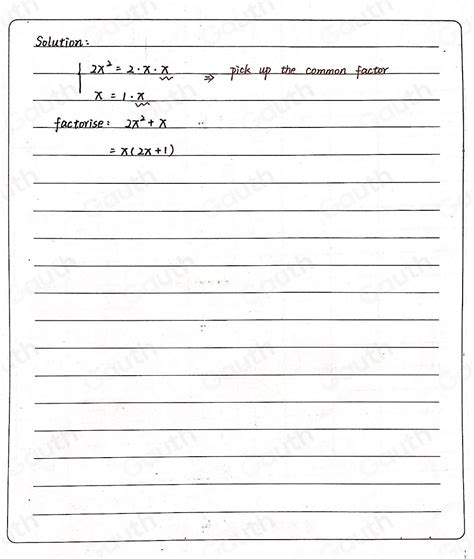 Solution:
2x² = 2 · x · x ⇒ pick up the common factor
x = 1 · x
factorise: 2x² + x
= x(2x+1)